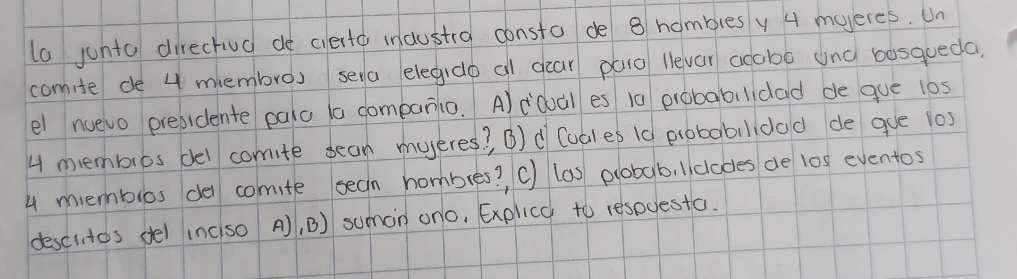 la junta directiva de cierta industra consta de 8 hombres y 4 mujeres. Un
comite de 4 miembros sera elegido al azar para llevar acabo una busqueda,
el nuevo presidente para la compañia. A) ¿Cual es la probabilidad de que los
4 miembros del comite sean mujeres?, B) ¿Cual es la probabilidad de que los
4 miembros del comite sean hombres?, C) las probabilidades de los eventos
descritos del inciso A), B) suman uno. Explica tu respuesta.